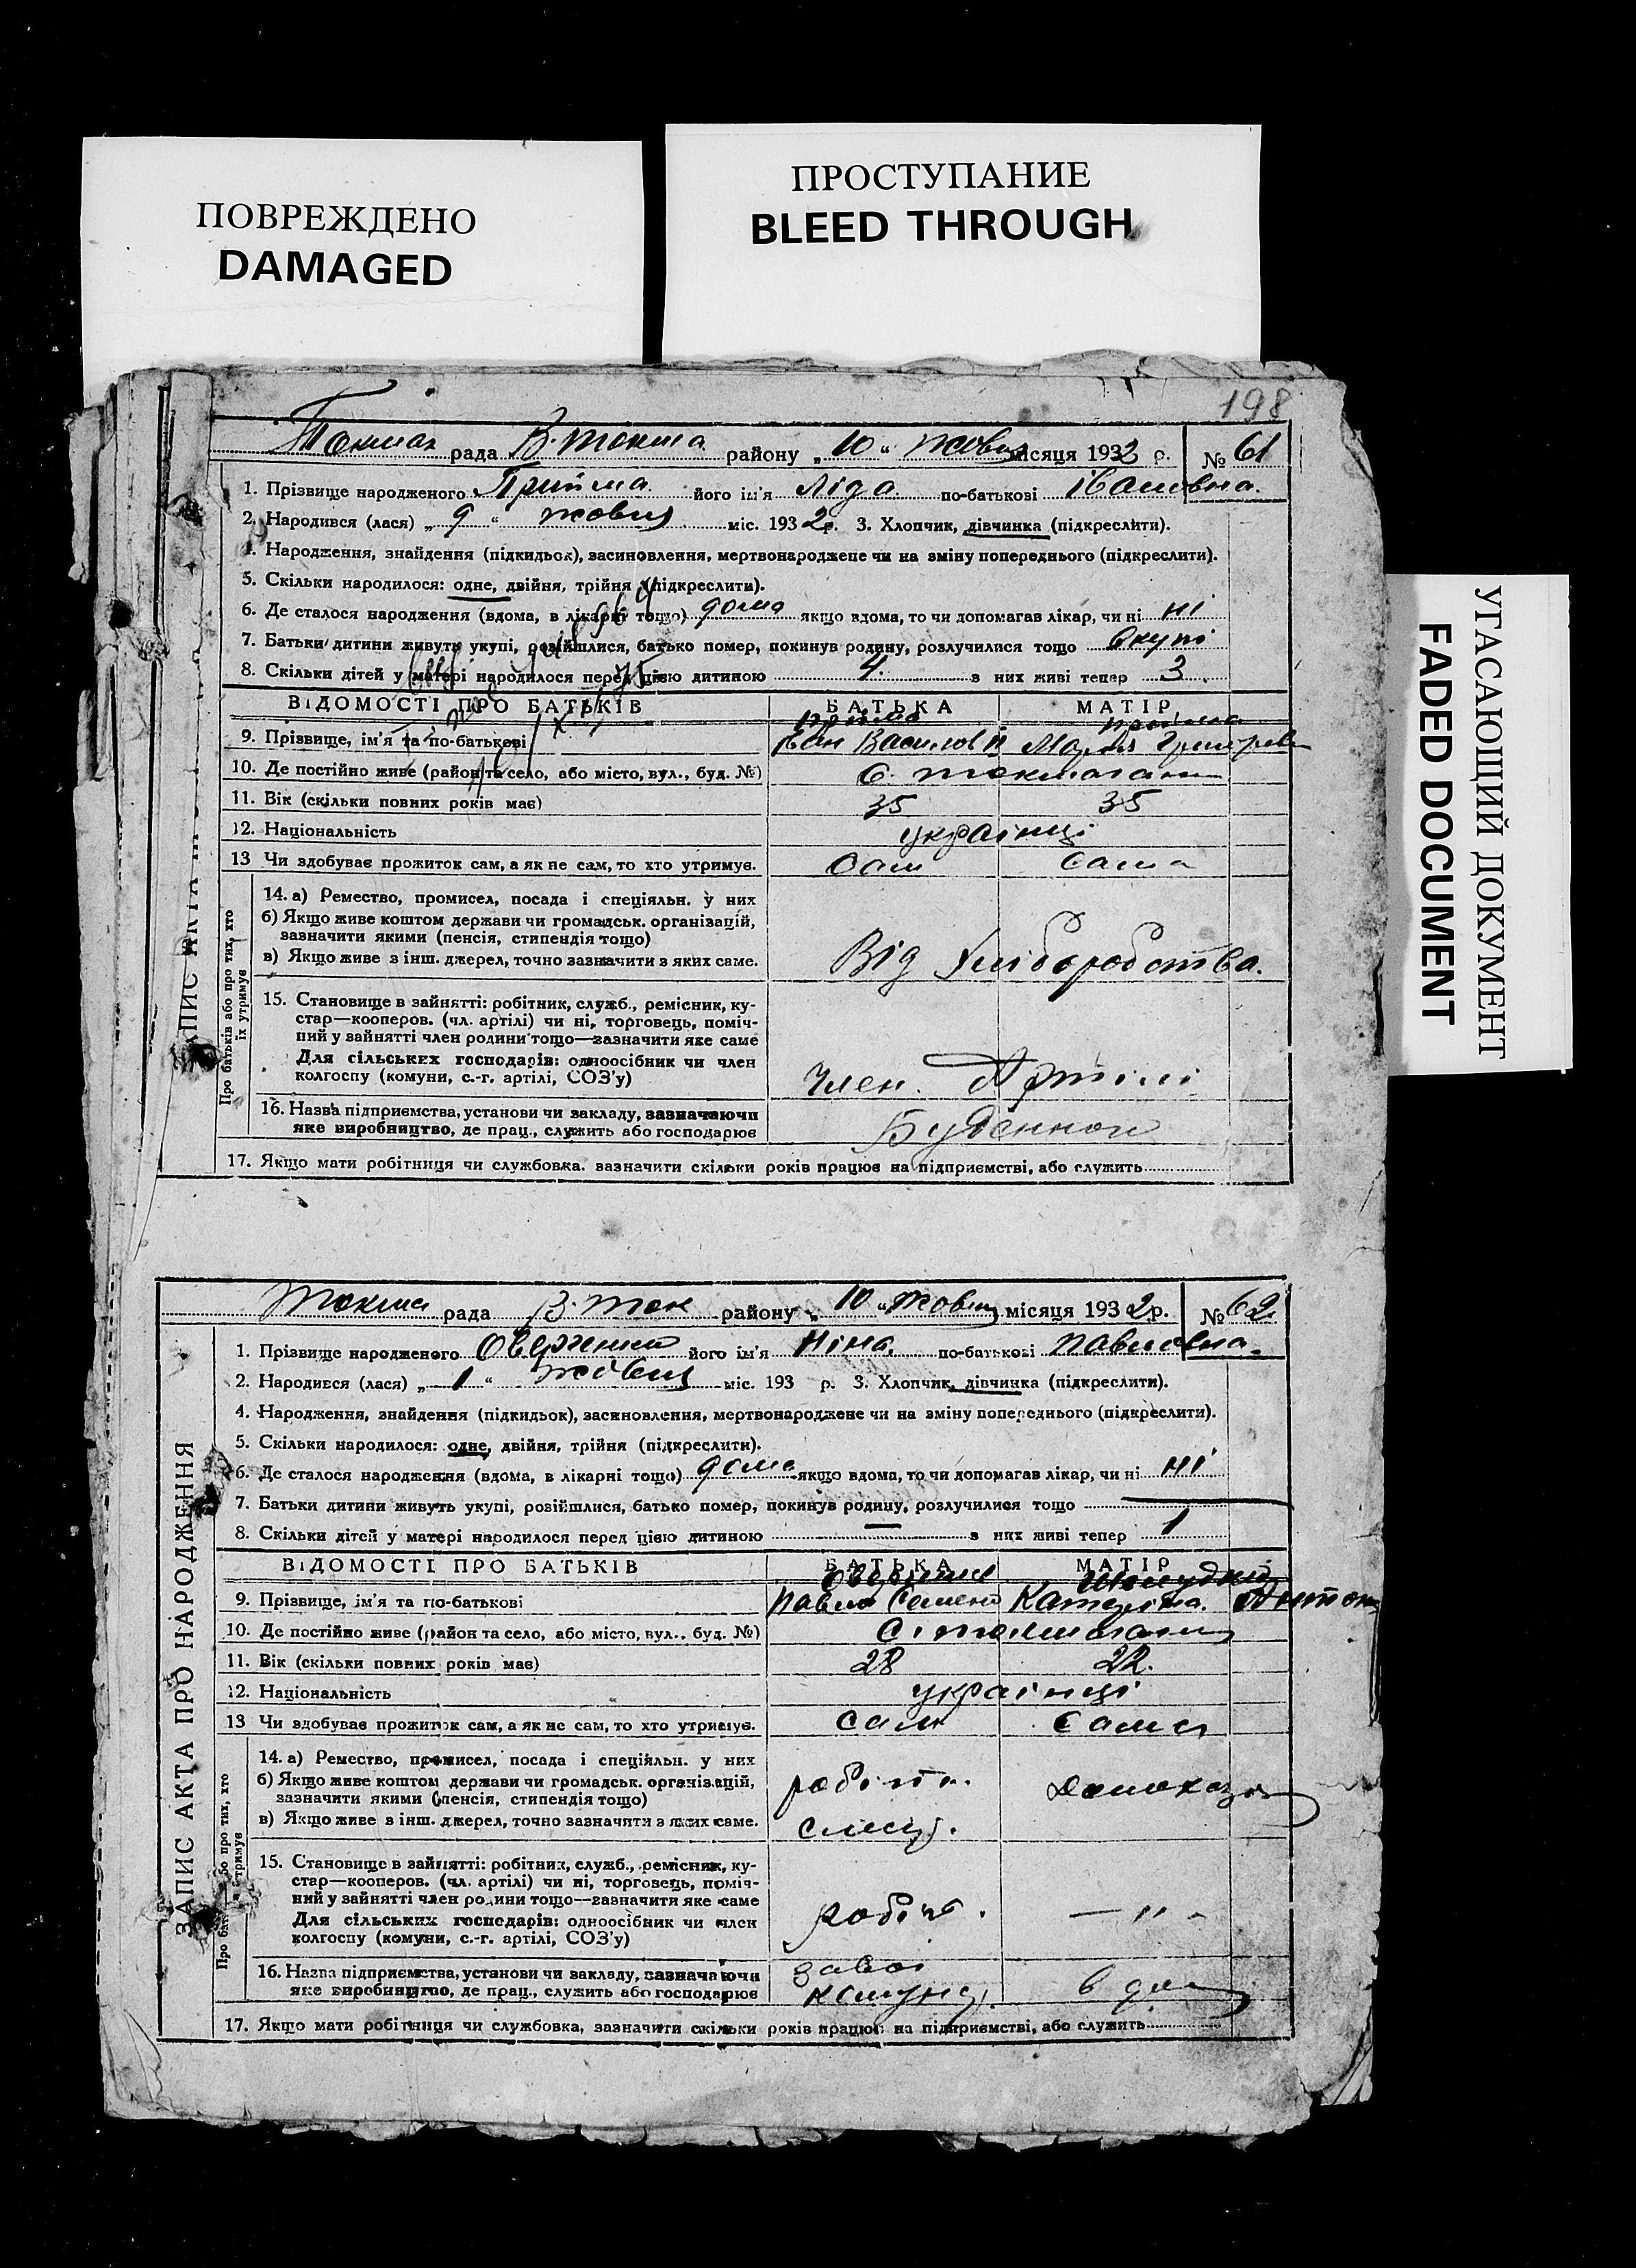 ПОВРЕЖДЕНО
DAMAGED
ПРОСТУПАНИЕ
BLEED THROUGH
УГАСАЮЩИЙ ДОКУМЕНТ
FADED DOCUMENT
198
Токмак рада В. Токма району „10“ жовт місяця 1932 р. № 61
1. Прізвище народженого Прийма його ім'я Ліда по-батькові Івановна.
2. Народився (лася) „9“ жовт міс. 1932 р. 3. Хлопчик, дівчинка (підкреслити).
4. Народження, знайдення (підкидьок), засиновлення, мертвонароджене чи на зміну попереднього (підкреслити).
5. Скільки народилося: одне, двійня, трійня (підкреслити).
6. Де сталося народження (вдома, в лікарні тощо) дома якщо вдома, то чи допомагав лікар, чи ні ні
7. Батьки дитини живуть укупі, розійшлися, батько помер, покинув родину, розлучилися тощо вкупі
8. Скільки дітей у матері народилося перед цією дитиною 4. з них живі тепер 3
ВІДОМОСТІ ПРО БАТЬКІВ БАТЬКА МАТІР
Прийма Прийма
9. Прізвище, ім'я та по-батькові Іван Василов Марія Григорев
10. Де постійно живе (район та село, або місто, вул., буд. №) С.
11. Вік (скільки повних років має) 35 35
12. Національність українці
13 Чи здобуває прожиток сам, а як не сам, то хто утримує. Сам Сама
Про батьків або про тих, хто їх утримує
14. а) Ремество, промисел, посада і спеціяльн. у них
б) Якщо живе коштом держави чи громадськ. організацій,
зазначити якими (пенсія, стипендія тощо)
в) Якщо живе з інш. джерел, точно зазначити з яких саме. Від хліборобства.
15. Становище в зайнятті: робітник, служб., ремісник, ку-
стар—кооперов. (чл. артілі) чи ні, торговець, поміч-
ний у зайнятті член родини тощо—зазначити яке саме
Для сільських господарів: одноосібник чи член
колгоспу (комуни, с.-г. артілі, СОЗ'у) Член. Артілі
16. Назва підприємства, установи чи закладу, зазначаючи
яке виробництво, де прац., служить або господарює Буденного
17. Якщо мати робітниця чи службовка. зазначити скільки років працює на підприємстві, або служить
Токма рада В. Ток району „10“ жовт місяця 1932 р. № 62
ЗАПИС АКТА ПРО НАРОДЖЕННЯ
1. Прізвище народженого його ім'я Ніна. по-батькові Павловна.
2. Народився (лася) „1“ жовт міс. 193 р. 3. Хлопчик, дівчинка (підкреслити).
4. Народження, знайдення (підкидьок), засиновлення, мертвонароджене чи на зміну попереднього (підкреслити).
5. Скільки народилося: одне, двійня, трійня (підкреслити).
6. Де сталося народження (вдома, в лікарні тощо) дома якщо вдома, то чи допомагав лікар, чи ні ні
7. Батьки дитини живуть укупі, розійшлися, батько помер, покинув родину, розлучилися тощо —
8. Скільки дітей у матері народилося перед цією дитиною — з них живі тепер 1
ВІДОМОСТІ ПРО БАТЬКІВ БАТЬКА МАТІР
9. Прізвище, ім'я та по-батькові Павло Семен Катерина. Антон
10. Де постійно живе (район та село, або місто, вул., буд. №) С.
11. Вік (скільки повних років має) 28 22.
12. Національність українці
13 Чи здобуває прожиток сам, а як не сам, то хто утримує. сам сама
14. а) Ремество, промисел, посада і спеціяльн. у них
б) Якщо живе коштом держави чи громадськ. організацій,
зазначити якими (пенсія, стипендія тощо)
в) Якщо живе з інш. джерел, точно зазначити з яких саме.
15. Становище в зайнятті: робітник, служб., ремісник, ку-
стар—кооперов. (чл. артілі) чи ні, торговець, поміч-
ний у зайнятті член родини тощо—зазначити яке саме
Для сільських господарів: одноосібник чи член
колгоспу (комуни, с.-г. артілі, СОЗ'у) робітн. — „ —
16. Назва підприємства, установи чи закладу, зазначаючи
яке виробництво, де прац., служить або господарює
17. Якщо мати робітниця чи службовка, зазначити скільки років працює на підприємстві, або служить